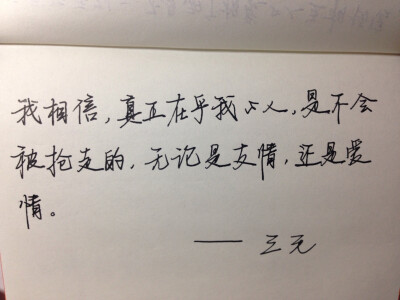 我相信，真正在乎我的人，是不会
被抢走的，无论是友情，还是爱
情。
—— 三元